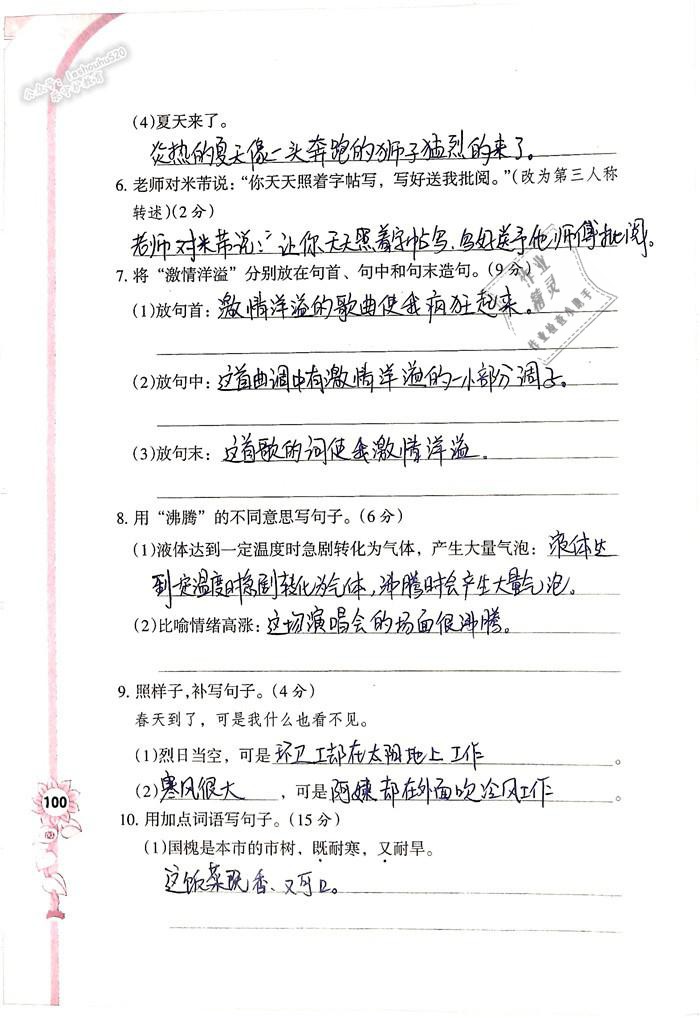 公众号: leshouhu520
乐守护教育
(4)夏天来了。
炎热的夏天像一头奔跑的狮子猛烈的来了。
6. 老师对米芾说：“你天天照着字帖写，写好送我批阅。”(改为第三人称
转述)(2分)
老师对米芾说：“让你天天照着字帖写，写好送予他师傅批阅。
7. 将“激情洋溢”分别放在句首、句中和句末造句。(9分)
(1)放句首：激情洋溢的歌曲使我疯狂起来。
(2)放句中：这首曲调中有激情洋溢的一小部分调子。
(3)放句末：这首歌的词使我激情洋溢。
8. 用“沸腾”的不同意思写句子。(6分)
(1)液体达到一定温度时急剧转化为气体，产生大量气泡：液体达
到一定温度时急剧转化为气体，沸腾时会产生大量气泡。
(2)比喻情绪高涨：这场演唱会的场面很沸腾。
9. 照样子，补写句子。(4分)
春天到了，可是我什么也看不见。
(1)烈日当空，可是环卫工却在太阳地上工作。
(2)寒风很大，可是阿姨却在外面吹冷风工作。
100
10. 用加点词语写句子。(15分)
(1)国槐是本市的市树，既耐寒，又耐旱。
这饭菜既香、又可口。
作业
精灵
作业检查小助手